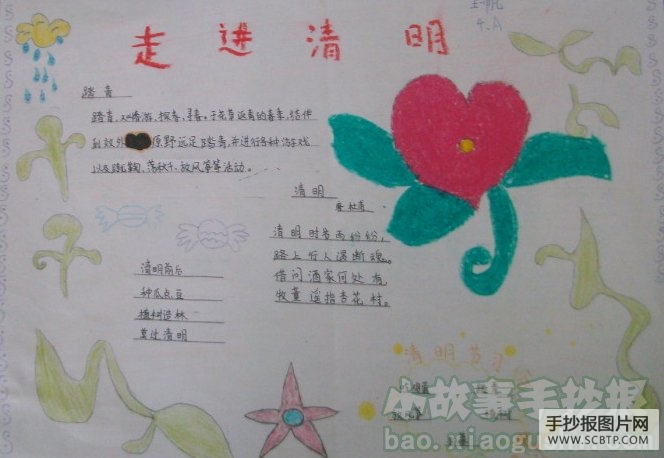 走进清明
4.A
踏青
踏青,又叫春游,探春,寻春。于花草返青的春季,结伴
到郊外原野远足踏青,并进行各种游戏
以及蹴鞠、荡秋千、放风筝等活动。
清明
唐 杜甫
清明时节雨纷纷,
路上行人遇断魂。
借问酒家何处有,
牧童遥指杏花村。
清明前后
种瓜点豆
植树造林
莫过清明
清明节习
小故事手抄报
bao.xiaogu
手抄报图片网
WWW.SCBTP.COM